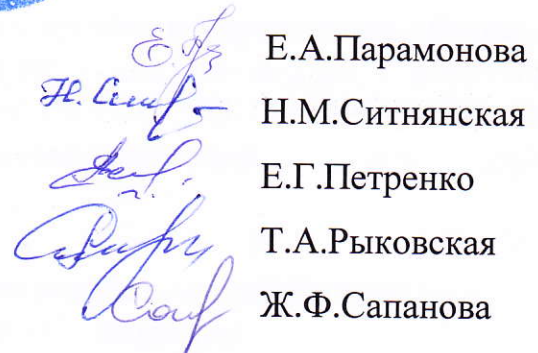 Е.А.Парамонова
Н.М.Ситнянская
Е.Г.Петренко
Т.А.Рыковская
Ж.Ф.Сапанова